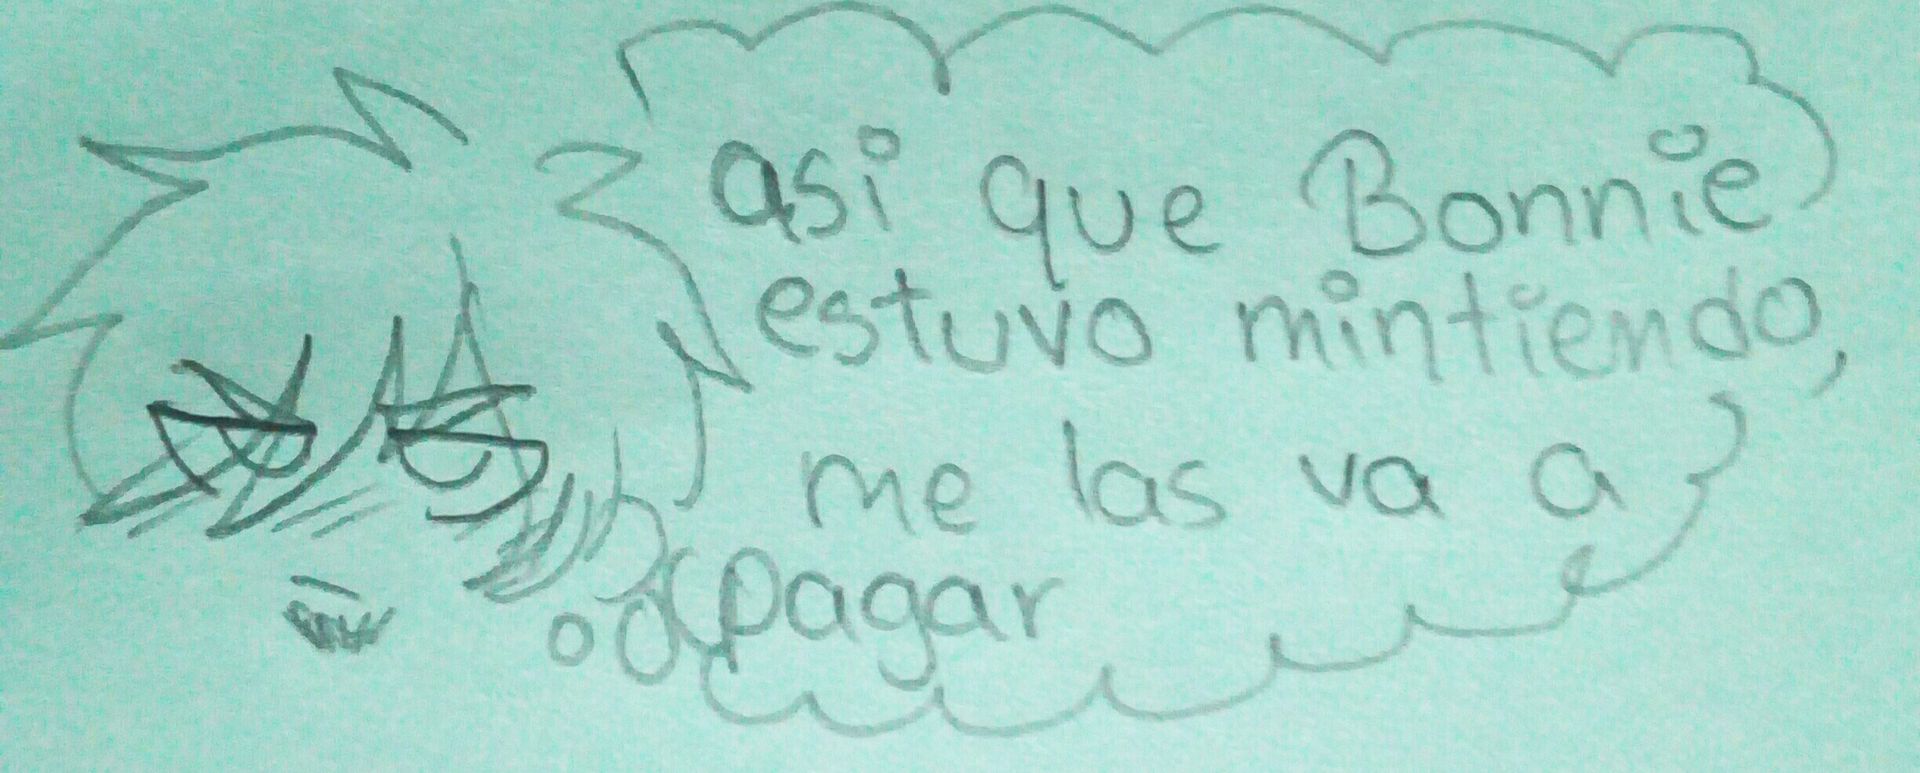 asi que Bonnie
estuvo mintiendo,
me las va a
pagar